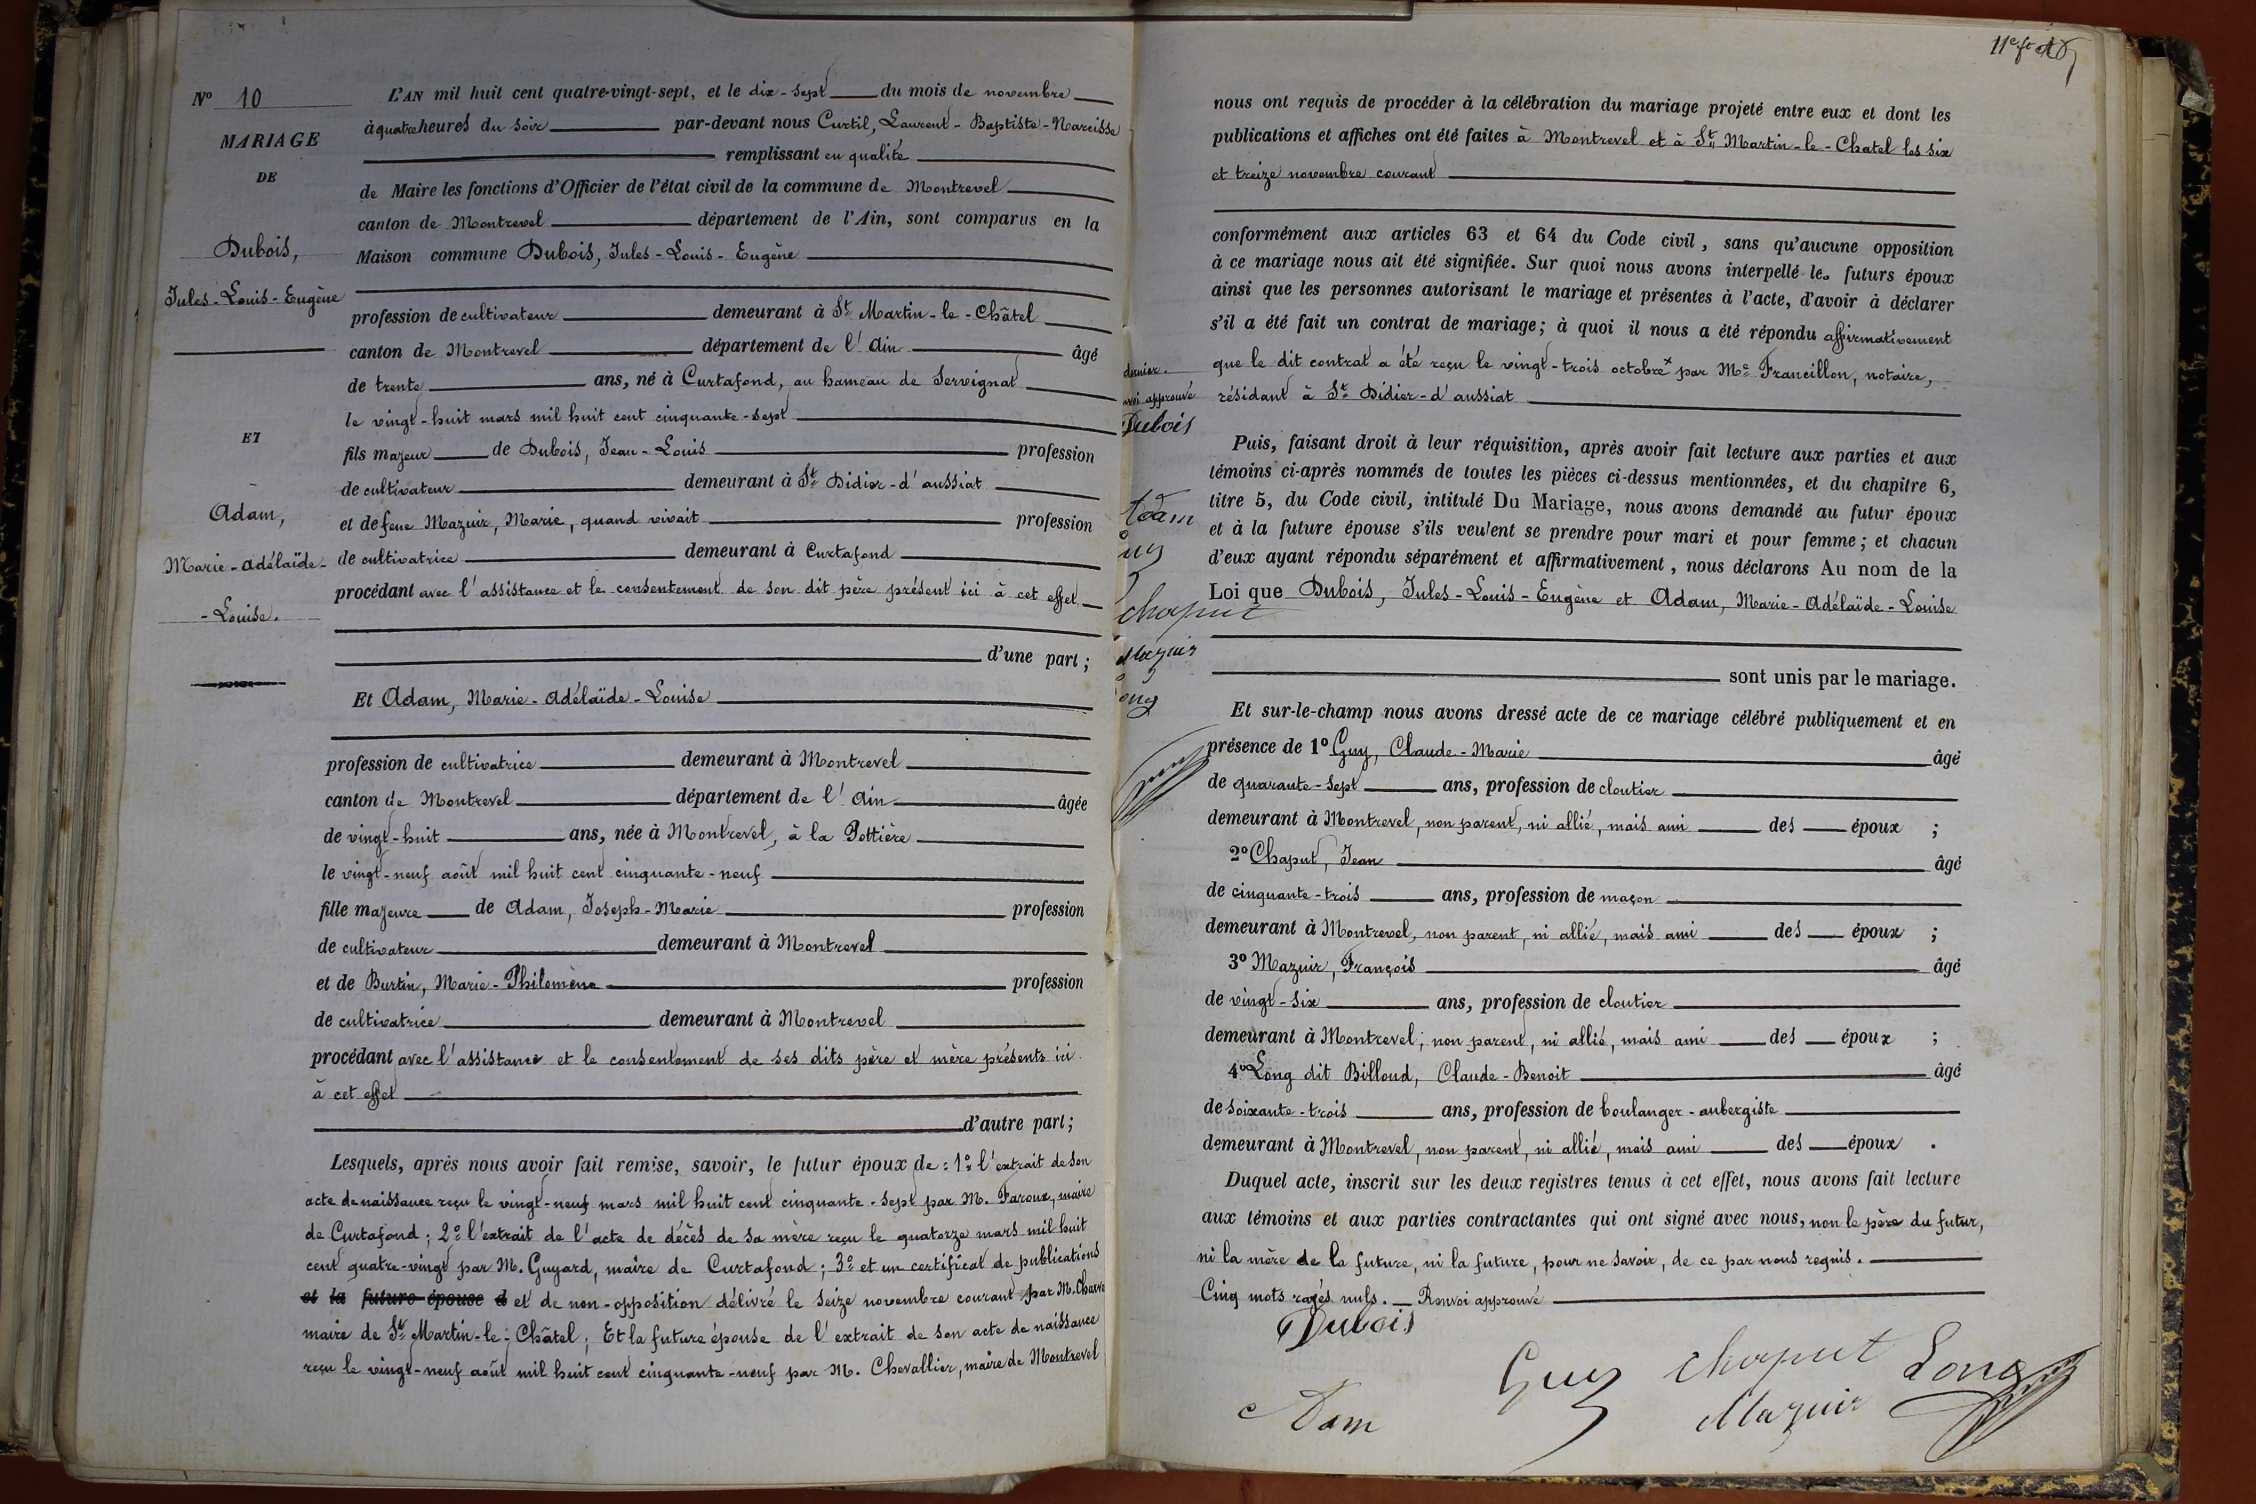 N° 10
MARIAGE
DE
Dubois,
Jules-Louis-Eugène
ET
Adam,
Marie-Adélaïde-
-Louise.
L'AN mil huit cent quatre-vingt-sept, et le dix-sept du mois de novembre
à quatre heures du soir par-devant nous Curtil, Laurent-Baptiste-Narcisse
remplissant en qualité
de Maire les fonctions d'Officier de l'état civil de la commune de Montrevel
canton de Montrevel département de l'Ain, sont comparus en la
Maison commune Dubois, Jules-Louis-Eugène
profession de cultivateur demeurant à St Martin-le-Châtel
canton de Montrevel département de l'Ain âgé
de trente ans, né à Curtafond, au hameau de Servignat
le vingt-huit mars mil huit cent cinquante-sept
fils majeur de Dubois, Jean-Louis profession
de cultivateur demeurant à St Didier-d'aussiat
et de feue Mazuir, Marie, quand vivait profession
de cultivatrice demeurant à Curtafond
procédant avec l'assistance et le consentement de son dit père présent ici à cet effet
d'une part ;
Et Adam, Marie-Adélaïde-Louise
profession de cultivatrice demeurant à Montrevel
canton de Montrevel département de l'Ain âgée
de vingt-huit ans, née à Montrevel, à la Pottière
le vingt-neuf août mil huit cent cinquante-neuf
fille majeure de Adam, Joseph-Marie profession
de cultivateur demeurant à Montrevel
et de Burtin, Marie-Philomène profession
de cultivatrice demeurant à Montrevel
procédant avec l'assistance et le consentement de ses dits père et mère présents ici
à cet effet
d'autre part ;
Lesquels, après nous avoir fait remise, savoir, le futur époux de : 1° l'extrait de son
acte de naissance reçu le vingt-neuf mars mil huit cent cinquante-sept par M. Faroux, maire
de Curtafond ; 2° l'extrait de l'acte de décès de sa mère reçu le quatorze mars mil huit
cent quatre-vingt par M. Guyard, maire de Curtafond ; 3° et un certificat de publications
et la future épouse d et de non-opposition délivré le seize novembre courant par M.
maire de St Martin-le-Châtel ; Et la future épouse de l'extrait de son acte de naissance
reçu le vingt-neuf août mil huit cent cinquante-neuf par M. Chevallier, maire de Montrevel
11e
nous ont requis de procéder à la célébration du mariage projeté entre eux et dont les
publications et affiches ont été faites à Montrevel et à St Martin-le-Chatel les six
et treize novembre courant
conformément aux articles 63 et 64 du Code civil, sans qu'aucune opposition
à ce mariage nous ait été signifiée. Sur quoi nous avons interpellé les futurs époux
ainsi que les personnes autorisant le mariage et présentes à l'acte, d'avoir à déclarer
s'il a été fait un contrat de mariage ; à quoi il nous a été répondu affirmativement
que le dit contrat a été reçu le vingt-trois octobre x par Me Francillon, notaire,
résidant à St Didier-d'aussiat
dernier.
approuvé
Dubois
Adam
Guy
chaput
Mazuir
Long
Puis, faisant droit à leur réquisition, après avoir fait lecture aux parties et aux
témoins ci-après nommés de toutes les pièces ci-dessus mentionnées, et du chapitre 6,
titre 5, du Code civil, intitulé Du Mariage, nous avons demandé au futur époux
et à la future épouse s'ils veulent se prendre pour mari et pour femme ; et chacun
d'eux ayant répondu séparément et affirmativement, nous déclarons Au nom de la
Loi que Dubois, Jules-Louis-Eugène et Adam, Marie-Adélaïde-Louise
sont unis par le mariage.
Et sur-le-champ nous avons dressé acte de ce mariage célébré publiquement et en
présence de 1° Guy, Claude-Marie âgé
de quarante-sept ans, profession de cloutier
demeurant à Montrevel, non parent, ni allié, mais ami des époux ;
2° Chaput, Jean âgé
de cinquante-trois ans, profession de maçon
demeurant à Montrevel, non parent, ni allié, mais ami des époux ;
3° Mazuir, François âgé
de vingt-six ans, profession de cloutier
demeurant à Montrevel, non parent, ni allié, mais ami des époux ;
4° Long dit Billoud, Claude-Benoit âgé
de soixante-trois ans, profession de boulanger-aubergiste
demeurant à Montrevel, non parent, ni allié, mais ami des époux .
Duquel acte, inscrit sur les deux registres tenus à cet effet, nous avons fait lecture
aux témoins et aux parties contractantes qui ont signé avec nous, non le père du futur,
ni la mère de la future, ni la future, pour ne savoir, de ce par nous requis.
Cinq mots rayés nuls. — Renvoi approuvé
Dubois
Guy chaput Long
Adam Mazuir